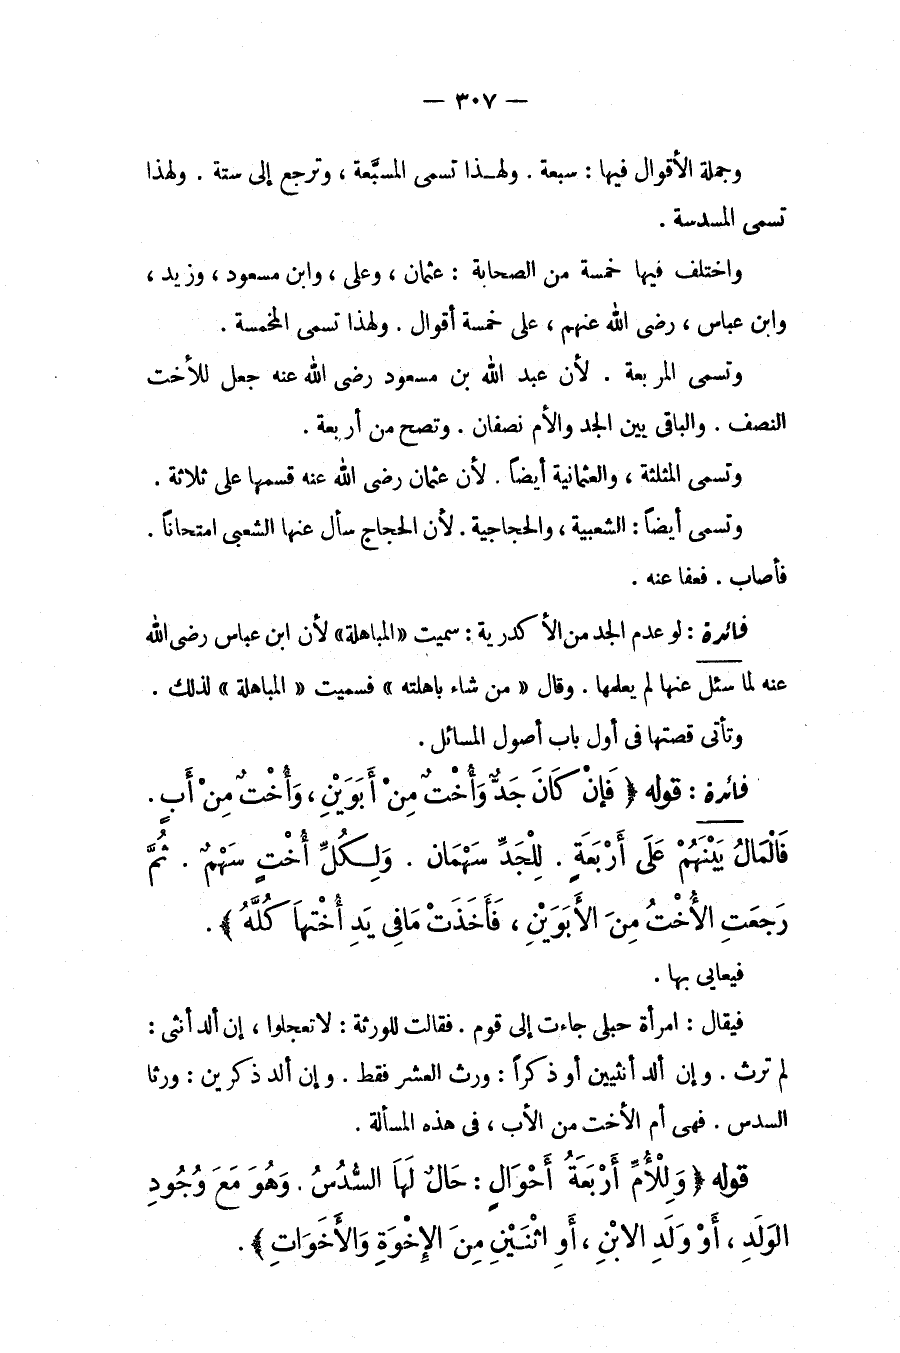 — ٣٠٧ —
وجملة الأقوال فيها : سبعة . ولهـذا تسمى المسبَّعة ، وترجع إلى ستة . ولهذا
تسمى المسدسة .
واختلف فيها خمسة من الصحابة : عثمان ، وعلى ، وابن مسعود ، وزيد ،
وابن عباس ، رضى الله عنهم ، على خمسة أقوال . ولهذا تسمى المخمسة .
وتسمى المربعة . لأن عبد الله بن مسعود رضى الله عنه جعل للأخت
النصف . والباقى بين الجد والأم نصفان . وتصح من أربعة .
وتسمى المثلثة ، والعثمانية أيضاً . لأن عثمان رضى الله عنه قسمها على ثلاثة .
وتسمى أيضاً : الشعبية ، والحجاجية . لأن الحجاج سأل عنها الشعبى امتحاناً .
فأصاب . فعفا عنه .
فائدة : لو عدم الجد من الأكدرية : سميت «المباهلة» لأن ابن عباس رضى الله
عنه لما سئل عنها لم يعلها . وقال « من شاء باهلته » فسميت « المباهلة » لذلك .
وتأتى قصتها فى أول باب أصول المسائل .
فائدة : قوله ﴿ فَإِنْ كَانَ جَدٌّ وَأُخْتٌ مِنْ أَبَوَيْنِ ، وَأُخْتٌ مِنْ أَبٍ .
فَالْمَالُ بَيْنَهُمْ عَلَى أَرْبَعَةٍ . لِلْجَدِّ سَهْمَان . وَلِـكُلِّ أُخْتٍ سَهْمٌ . ثُمَّ
رَجَعَتِ الأُخْتُ مِنَ الأَبَوَيْنِ ، فَأَخَذَتْ مَافِى يَدِ أُخْتِهاَ كُلَّهُ ﴾ .
فيعايى بها .
فيقال : امرأة حبلى جاءت إلى قوم . فقالت للورثة : لا تعجلوا ، إن ألد أنثى :
لم ترث . وإن ألد أنثيين أو ذكراً : ورث العشر فقط . وإن ألد ذكرين : ورثا
السدس . فهى أم الأخت من الأب ، فى هذه المسألة .
قوله ﴿ وَلِلْأُمِّ أَرْبَعَةُ أَحْوَالٍ : حَالٌ لَهَا السُّدُسُ . وَهُوَ مَعَ وُجُودِ
الوَلَدِ ، أَوْ وَلَدِ الابْنِ ، أَوِ اثْنَيْنِ مِنَ الإِخْوَةِ وَالأَخَوَاتِ ﴾ .